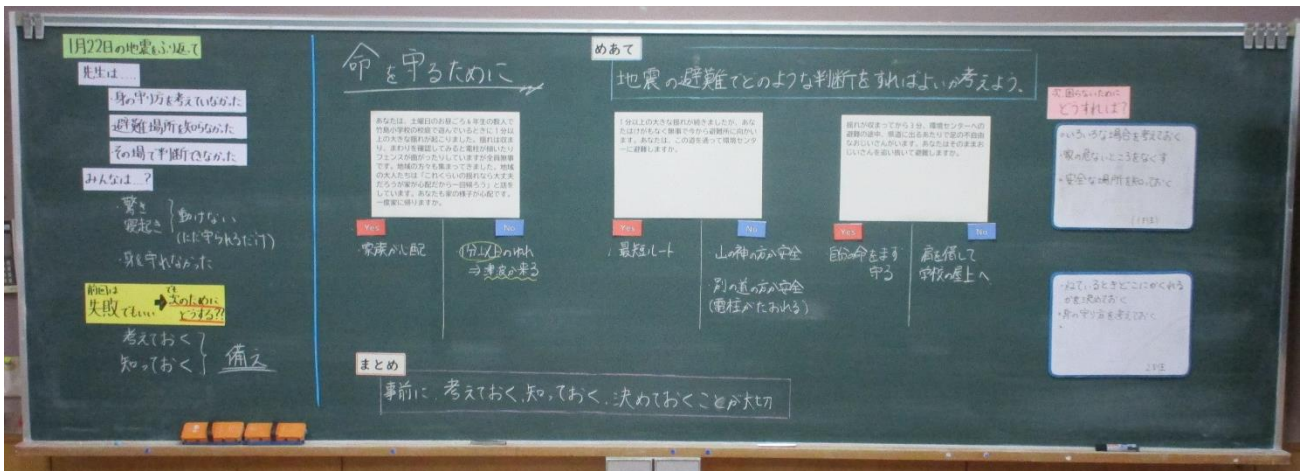 1月22日の地震をふり返って
先生は....
・身の守り方を考えていなかった
避難場所を知らなかった
その場で判断できなかった
みんなは...?
・驚き
寝起き
動けない
(ただ守られるだけ)
・身を守れなかった
前回は
失敗でもいい
でも
次のために
どうする?!
考えておく
知っておく
備え
命を守るために
めあて
地震の避難でどのような判断をすればよいか考えよう。
あなたは、土曜日のお昼ごろ6年生の数人で
竹島小学校の校庭で遊んでいるときに1分以
上の大きな揺れが起こりました。揺れは収ま
り、まわりを確認してみると電柱が傾いたり
フェンスが曲がったりしていますが全員無事
です。地域の方々も集まってきました。地域
の大人たちは「これくらいの揺れなら大丈夫
だろうが家が心配だから一回帰ろう」と話を
しています。あなたも家の様子が心配です。
一度家に帰りますか。
Yes
No
家族が心配
1分以上のゆれ
⇒津波が来る
1分以上の大きな揺れが続きましたが、あな
たはけがもなく無事で今から避難所に向かい
ます。あなたは、この道を通って環境センタ
ーに避難しますか。
Yes
No
最短ルート
山の神の方が安全
別の道の方が安全
(電柱がたおれる)
揺れが収まってから3分、環境センターへの
避難の途中、県道に出るあたりで足の不自由
なおじいさんがいます。あなたはそのままお
じいさんを追い抜いて避難しますか。
Yes
No
自分の命をまず
守る
肩を借して
学校の屋上へ
次、困らないために
どうすれば?
・いろいろな場合を考えておく
・家の危ないところをなくす
・安全な場所を知っておく
・ねているときどこにかくれる
かを決めておく
・身の守り方を考えておく
まとめ
事前に、考えておく、知っておく、決めておくことが大切